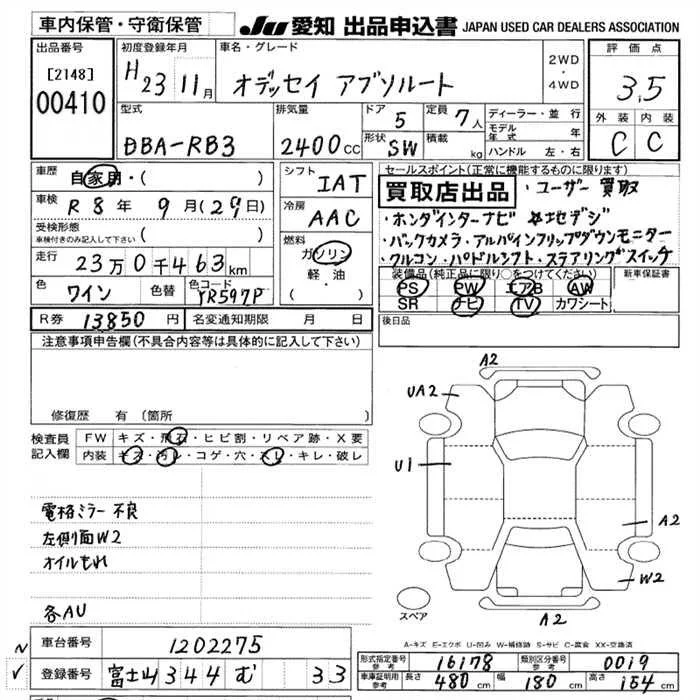 車内保管・守衛保管
JU 愛知 出品申込書 JAPAN USED CAR DEALERS ASSOCIATION
出品番号
[2148]
00410
初度登録年月
H 23 11月
車名・グレード
オデッセイ アブソルート
2WD
・
4WD
評価点
3,5
外装 内装
C C
型式
DBA-RB3
排気量
2400cc
ドア 5
定員 7人
形状 SW
積載 kg
ディーラー・並行
モデル年式 年
ハンドル 左・右
車歴 自家用・( )
車検 R 8年 9月(29日)
受検形態
車検付きのみ記入して下さい ( )
走行 23万0千463km
色 ワイン
色替
色コード YR597P
シフト IAT
冷房 AAC
燃料
ガソリン
軽・油
( )
セールスポイント(正常に機能するものに限ります)
買取店出品 ・ユーザー買取
・ホンダインターナビ 地デジ
・バックカメラ・アルパインフリップダウンモニター
・クルコン・パドルシフト・ステアリングスイッチ
装備品(純正品に限り○をつけてください) 新車保証書
PS PW エアB AW
SR ナビ TV カワシート
R券 13850円
名変通知期限 月 日
後日品
注意事項申告欄(不具合内容等は具体的に記入して下さい)
修復歴 有 (箇所
検査員記入欄
FW キズ・飛石・ヒビ割・リペア跡・X要
内装 キズ・汚レ・コゲ・穴・スレ・キレ・破レ
電格ミラー不良
左側面W2
オイルもれ
各AU
A2
UA2
U1
A2
W2
A2
スペア
A-キズ E-エクボ U-凹み W-補修跡 S-サビ C-腐食 XX-交換済
車台番号 1202275
N
✓
登録番号 富士山 344 む 33
形式指定番号 参考 16178
類別区分番号 参考 0019
車庫証明用 参考 長さ 480cm 幅 180cm 高さ 154cm